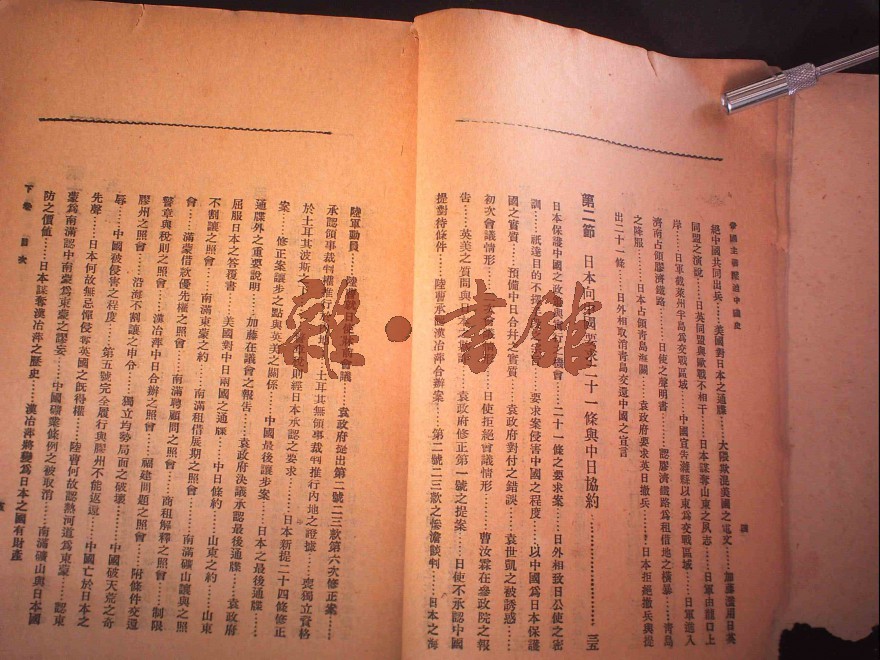 帝國主義壓迫中國史
絕中國共同出兵……美國對日本之通牒……大隈欺混美國之電文……加藤濫用日英
同盟之演說……日英同盟與歐戰不相干……日本謀奪山東之夙志……日軍由龍口上
岸……日軍截萊州半島爲交戰區域……中國宣告濰縣以東爲交戰區域……日軍進入
濟南占領膠濟鐵路……日使之聲明書……認膠濟鐵路爲租借地之橫暴……靑島
之降服……日本占領靑島……袁政府要求英日撤兵……日本拒絕撤兵與提
出二十一條……日外相取消靑島交還中國之宣言
第二節 日本向中國要求二十一條與中日協約…………三五
日本保證中國之政……機會……二十一條之要求案……日外相致日公使之密
訓……祇達目的不擇……要求案侵害中國之程度……以中國爲日本保護
國之實質……預備中日合幷之實質……袁政府對付之錯誤……袁世凱之被誘惑……
初次會議情形……會……日使拒絕會議情形……曹汝霖在參政院之報
告……英美之質問與……袁政府修正第一號之提案……日使不承認中國
提對待條件……陸曹承認漢冶萍合辦案……第二號二三款之慘澹談判……日本之海
陸軍動員……陸曹……日使……會議……袁政府提出第二號二三款第六次修正案……
承認領事裁判權推行……土耳其無領事裁判推行內地之證據……喪獨立資格
於土耳其波斯之下……稅則經日本承認之要求……日本新提二十四條修正
案……修正案讓步之點與英美之關係……中國最後讓步案……日本之最後通牒……
通牒外之重要說明……加藤在議會之報告……袁政府決議承認最後通牒……袁政府
屈服日本之答覆書……美國對中日兩國之通牒……中日條約……山東之約……山東
不割讓之照會……南滿東蒙之約……南滿租借展期之照會……南滿礦山讓與之照
會……滿蒙借款優先權之照會……南滿聘顧問之照會……商租解釋之照會……制限
警章與稅則之照會……漢冶萍中日合辦之照會……福建問題之照會……附條件交還
膠州之照會……沿海不割讓之申令……獨立均勢局面之破壞……中國破天荒之奇
辱……中國被侵害之程度……第五號完全履行與膠州不能返還……中國亡於日本之
先聲……日本何故無忌憚侵奪英國之既得權……陸曹何故認熱河道爲東蒙……認東
蒙爲南滿認中南蒙爲東蒙之謬妄……中國礦業條例之被取消……南滿礦山與日本國
防之價值……日本謀奪漢冶萍之歷史……漢冶萍將變爲日本之國有財產
下卷 目次
雜·書館